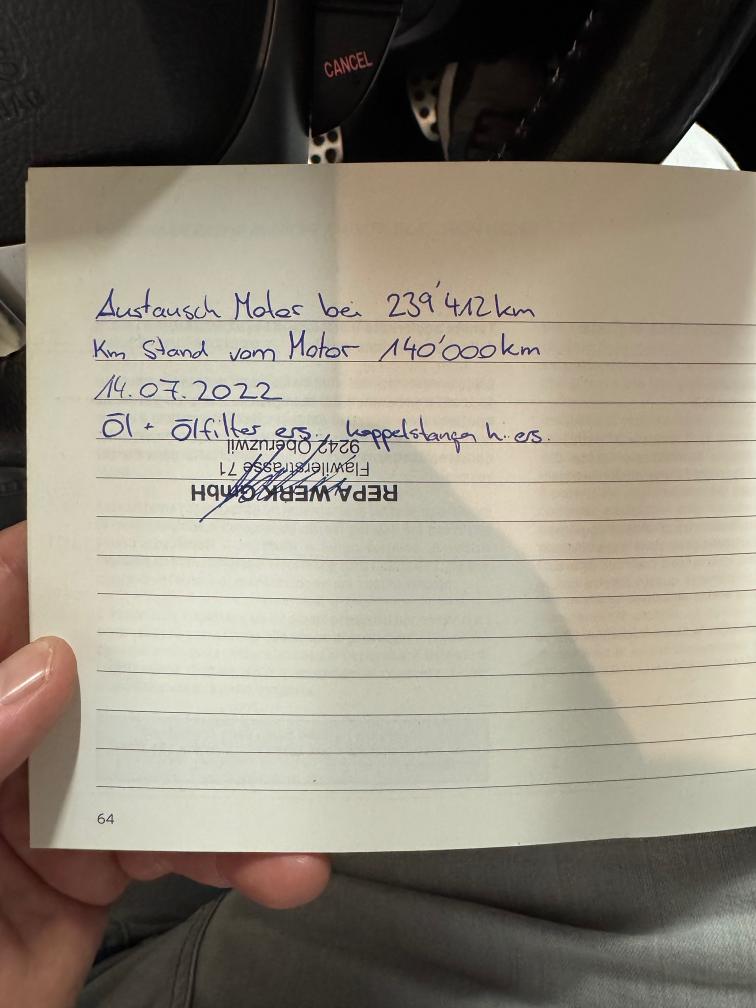 CANCEL
Austausch Motor bei 239'412 km
Km Stand vom Motor 140'000 km
14.07.2022
Öl + Ölfilter ers. Koppelstangen h. ers.
REPAWERK GmbH
Flawilerstrasse 71
9242 Oberuzwil
64